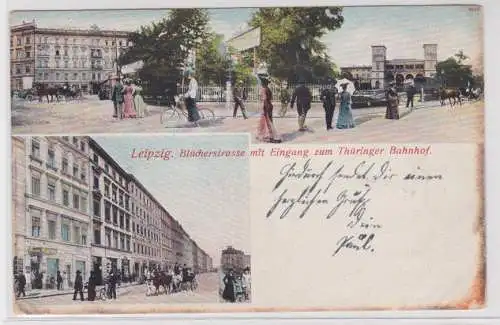 Leipzig. Blücherstrasse mit Eingang zum Thüringer Bahnhof.
Hiedurch sendet dir einen
herzlichen Gruß
Dein
Paul.